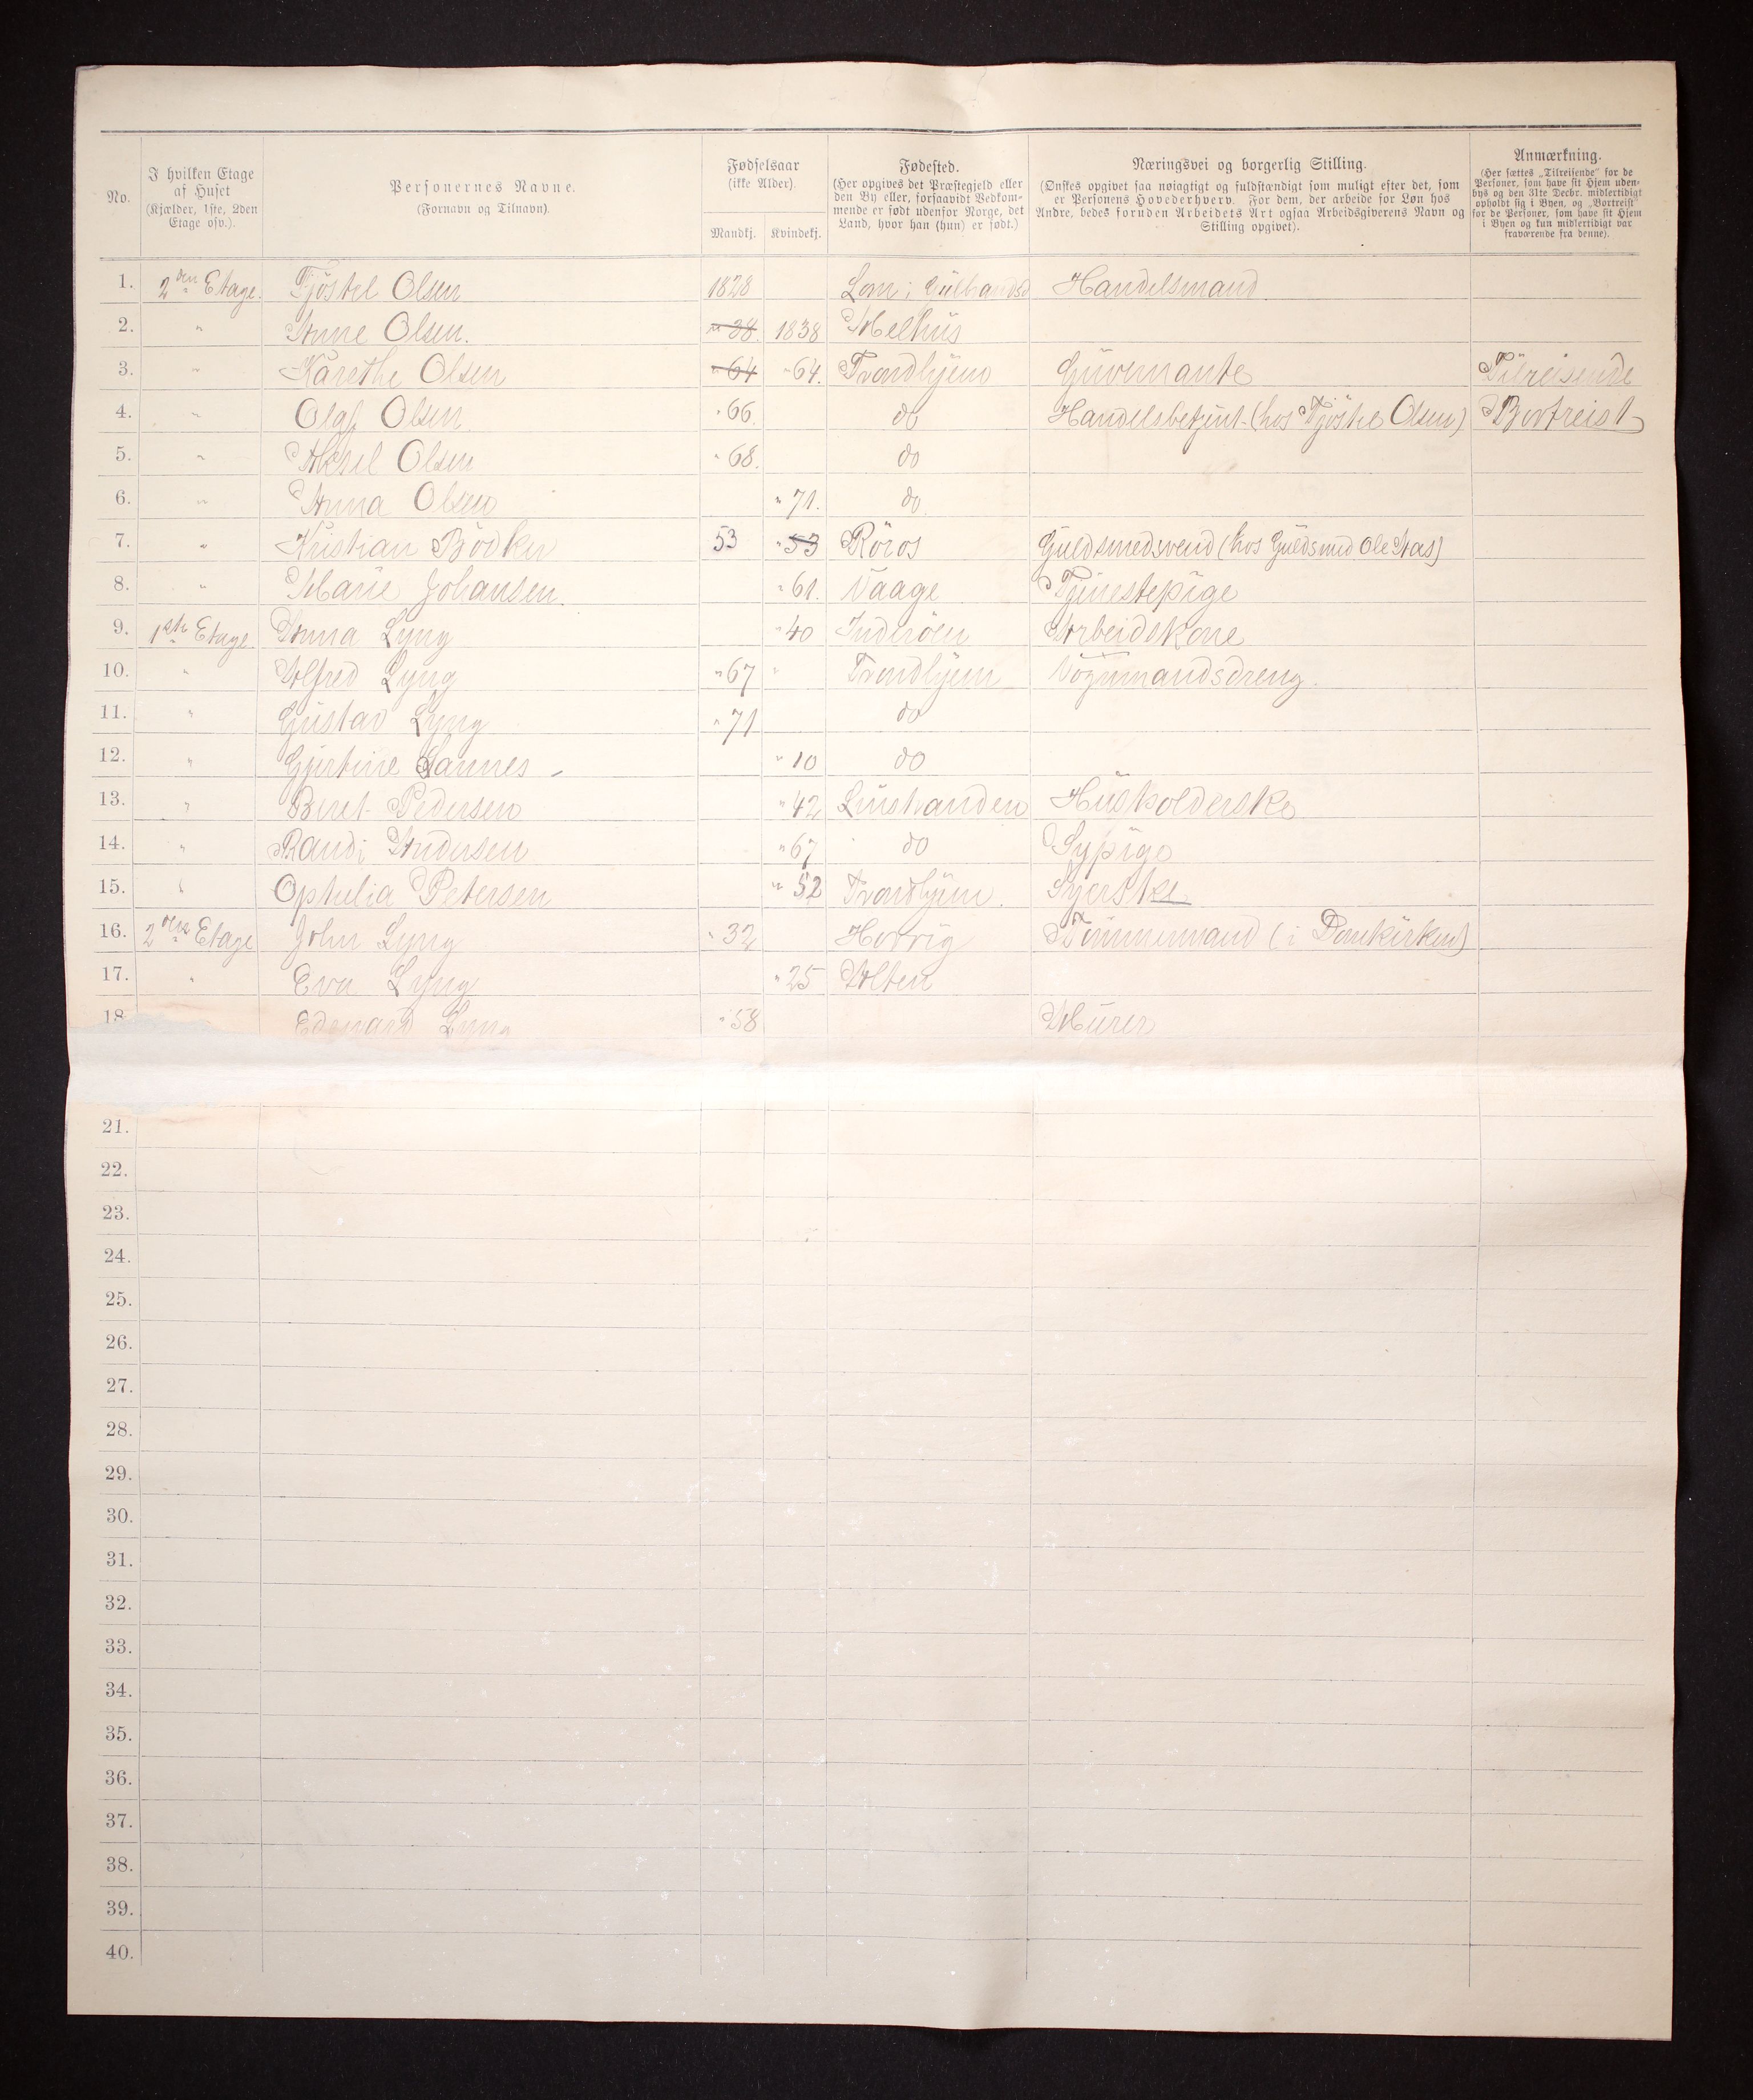 No.
I hvilken Etage af Huset (Kjælder, 1ste, 2den Etage osv.).
Personernes Navne. (Fornavn og Tilnavn).
Fødselsaar (ikke Alder).
Mandkj. Kvindekj.
Fødested. (Her opgives det Præstegjeld eller den By eller, forsaavidt Vedkommende er født udenfor Norge, det Land, hvor han (hun) er født.)
Næringsvei og borgerlig Stilling. (Ønskes opgivet saa nøiagtigt og fuldstændigt som muligt efter det, som er Personens Hovederhverv. For dem, der arbeide for Løn hos Andre, bedes foruden Arbeidets Art ogsaa Arbeidsgiverens Navn og Stilling opgivet).
Anmærkning. (Her sættes „Tilreisende" for de Personer, som have sit Hjem udenbys og den 31te Decbr. midlertidigt opholdt sig i Byen, og „Bortreist" for de Personer, som have sit Hjem i Byen og kun midlertidigt var fraværende fra denne).
1. 2den Etage. Tjöstel Olsen 1828 Lom i Gulbrandsd Handelsmand
2. " Anne Olsen. " 38. 1838 Melhus
3. " Karethe Olsen " 64 " 64. Trondhjem Guvernante Tilreisende
4. " Olaf Olsen " 66. do Handelsbetjent (hos Tjöstel Olsen) Bortreist
5. " Aksel Olsen " 68. do
6. " Anna Olsen " 71. do
7. " Kristian Bödker 53 " 53 Röros Guldsmedsvend (hos Guldsmed Ole Aas)
8. " Marie Johansen. " 61. Vaage Tjenestepige
9. 1ste Etage Anna Lyng " 40 Inderöen Arbeidskone
10. " Alfred Lyng " 67 " Trondhjem Vognmandsdreng.
11. " Gustav Lyng " 71 do
12. " Gjertine Sannes " 10 do
13. " Beret Pedersen " 42 Husholderske
14. " Randi Andersen " 67 do Sypige
15. " Ophelia Petersen " 52 Trondhjem. Syerske
16. 2den Etage John Lyng " 32 Tömmermand (i Domkirken)
17. " Eva Lyng " 25
18 Edevard Lyng " 58 Murer
21.
22.
23.
24.
25.
26.
27.
28.
29.
30.
31.
32.
33.
34.
35.
36.
37.
38.
39.
40.